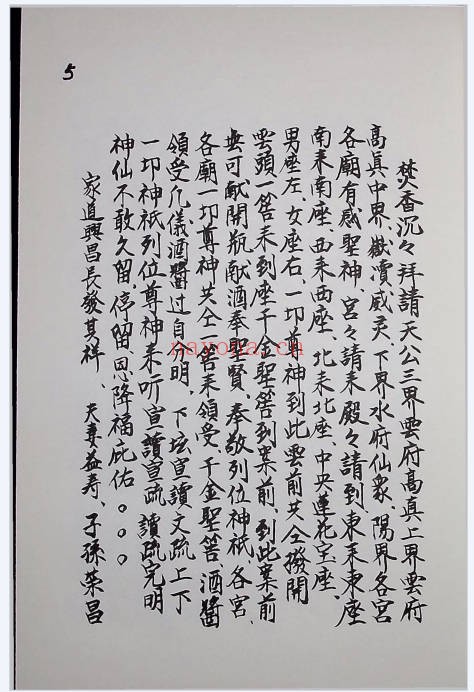 5
焚香沉々拜請天公三界雲府高真上界雲府
高真中界、嶽瀆威灵、下界水府仙衆、陽界各宮
各廟有感聖神、宮々請来殿々請到、東来東座
南来南座、西来西座、北来北座、中央蓮花宝座、
男座左、女座右、一切尊神到此雲前共仝撥開
雲頭一筶来到座千金聖筶到案前、到此案前
無可献開瓶献酒奉聖賢、奉敬列位神祇各宮、
各廟一切尊神、共仝一筶来領受、千金聖筶酒醬
領受凡儀酒醬过自分明、下坛宣讀文疏上下
一切神祇列位尊神来听宣讀宣疏讀疏完明
神仙不敢久留、停留、恩降福庇佑。。。
家道興昌長發其祥、夫妻益寿、子孫荣昌
nayona.cn